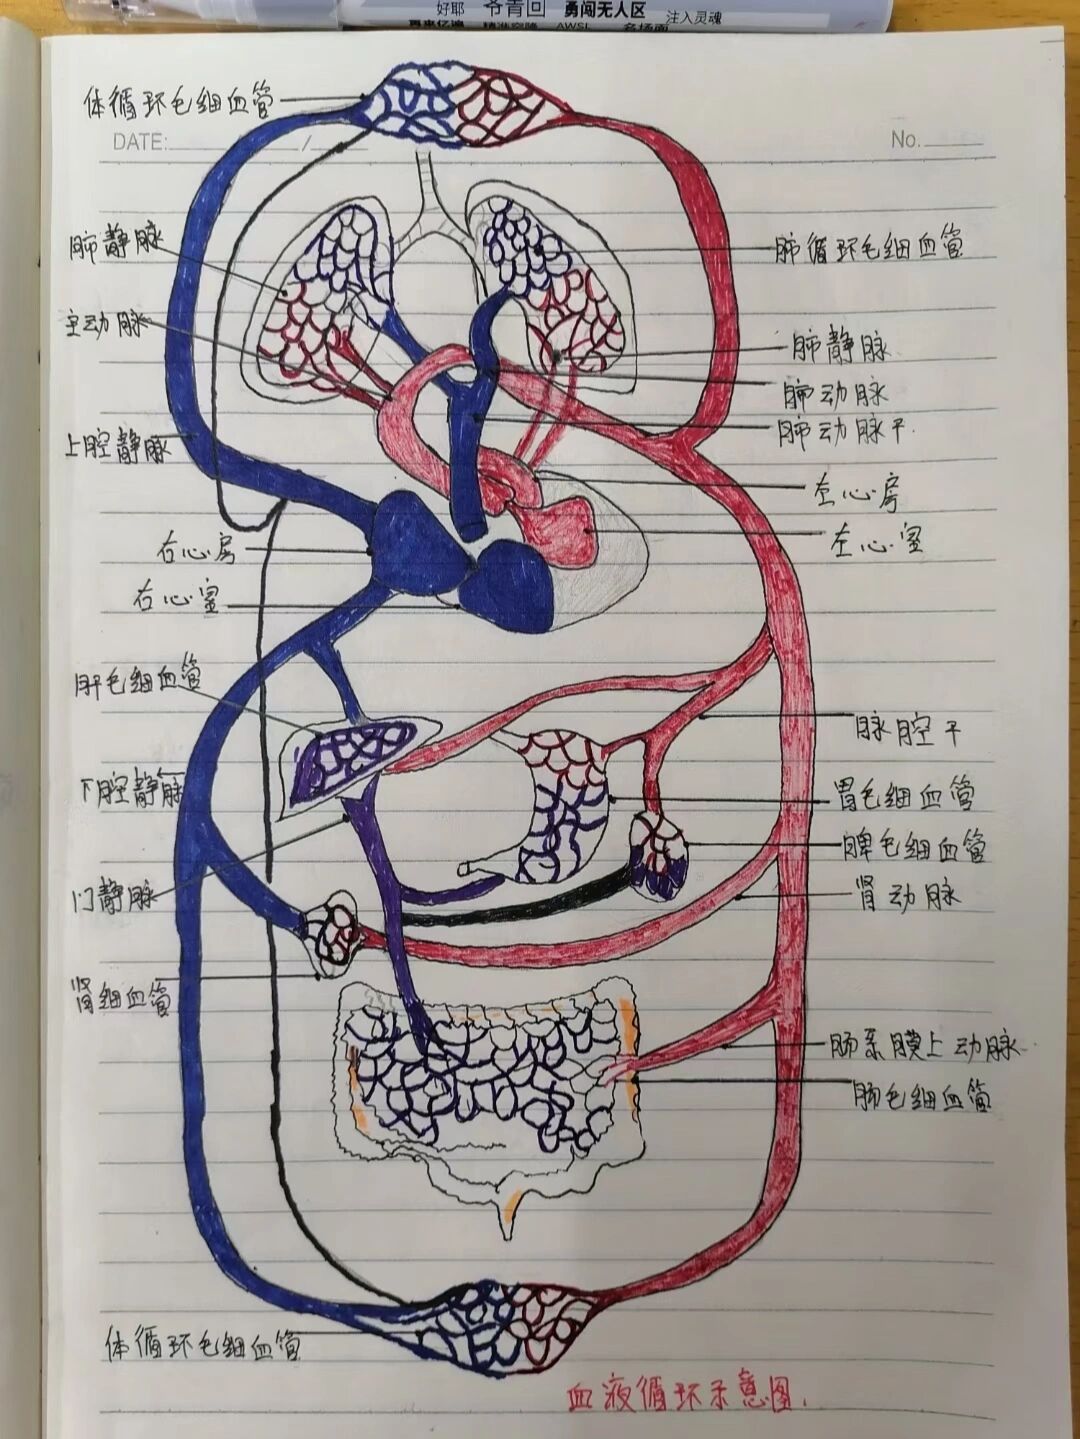 好耶 爷青回 勇闯无人区 注入灵魂
AWSL 名场面
体循环毛细血管
DATE: /
No.
肺静脉
肺循环毛细血管
主动脉
肺静脉
肺动脉
肺动脉干.
上腔静脉
左心房
左心室
右心房
右心室
肝毛细血管
脉腔干
下腔静脉
胃毛细血管
脾毛细血管
门静脉
肾动脉
肾细血管
肠系膜上动脉
肠毛细血管
体循环毛细血管
血液循环示意图.